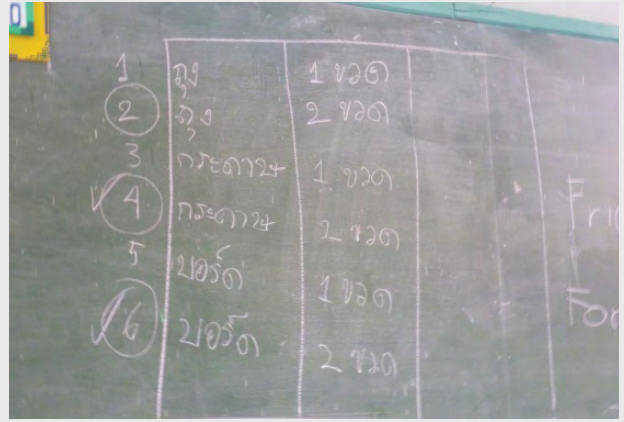 1 ถุง 1 ขวด
2 ถุง 2 ขวด
3 กระดาษ 1 ขวด
4 กระดาษ 2 ขวด
5 บอร์ด 1 ขวด
6 บอร์ด 2 ขวด